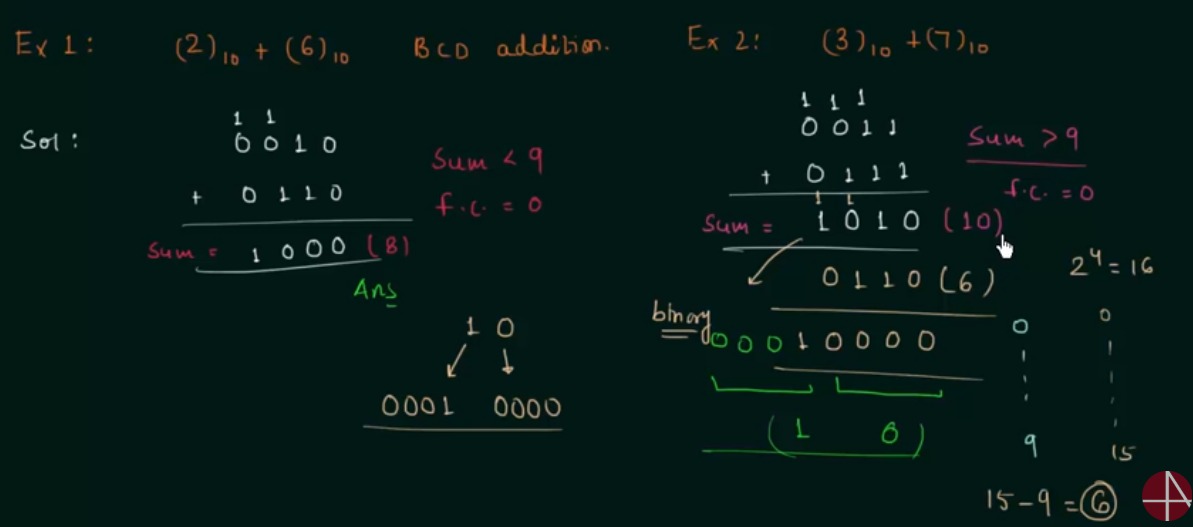 Ex 1: (2)₁₀ + (6)₁₀ BCD addition.
Sol:
1 1
0 0 1 0
+ 0 1 1 0
Sum = 1 0 0 0 (8)
Ans
Sum < 9
f.c. = 0
1 0
0001 0000
Ex 2: (3)₁₀ + (7)₁₀
1 1 1
0 0 1 1
+ 0 1 1 1
1 1
Sum = 1 0 1 0 (10)
0 1 1 0 (6)
binary
0 0 0 1 0 0 0 0
(1 0)
Sum > 9
f.c. = 0
2⁴ = 16
0 0
9 15
15 - 9 = 6